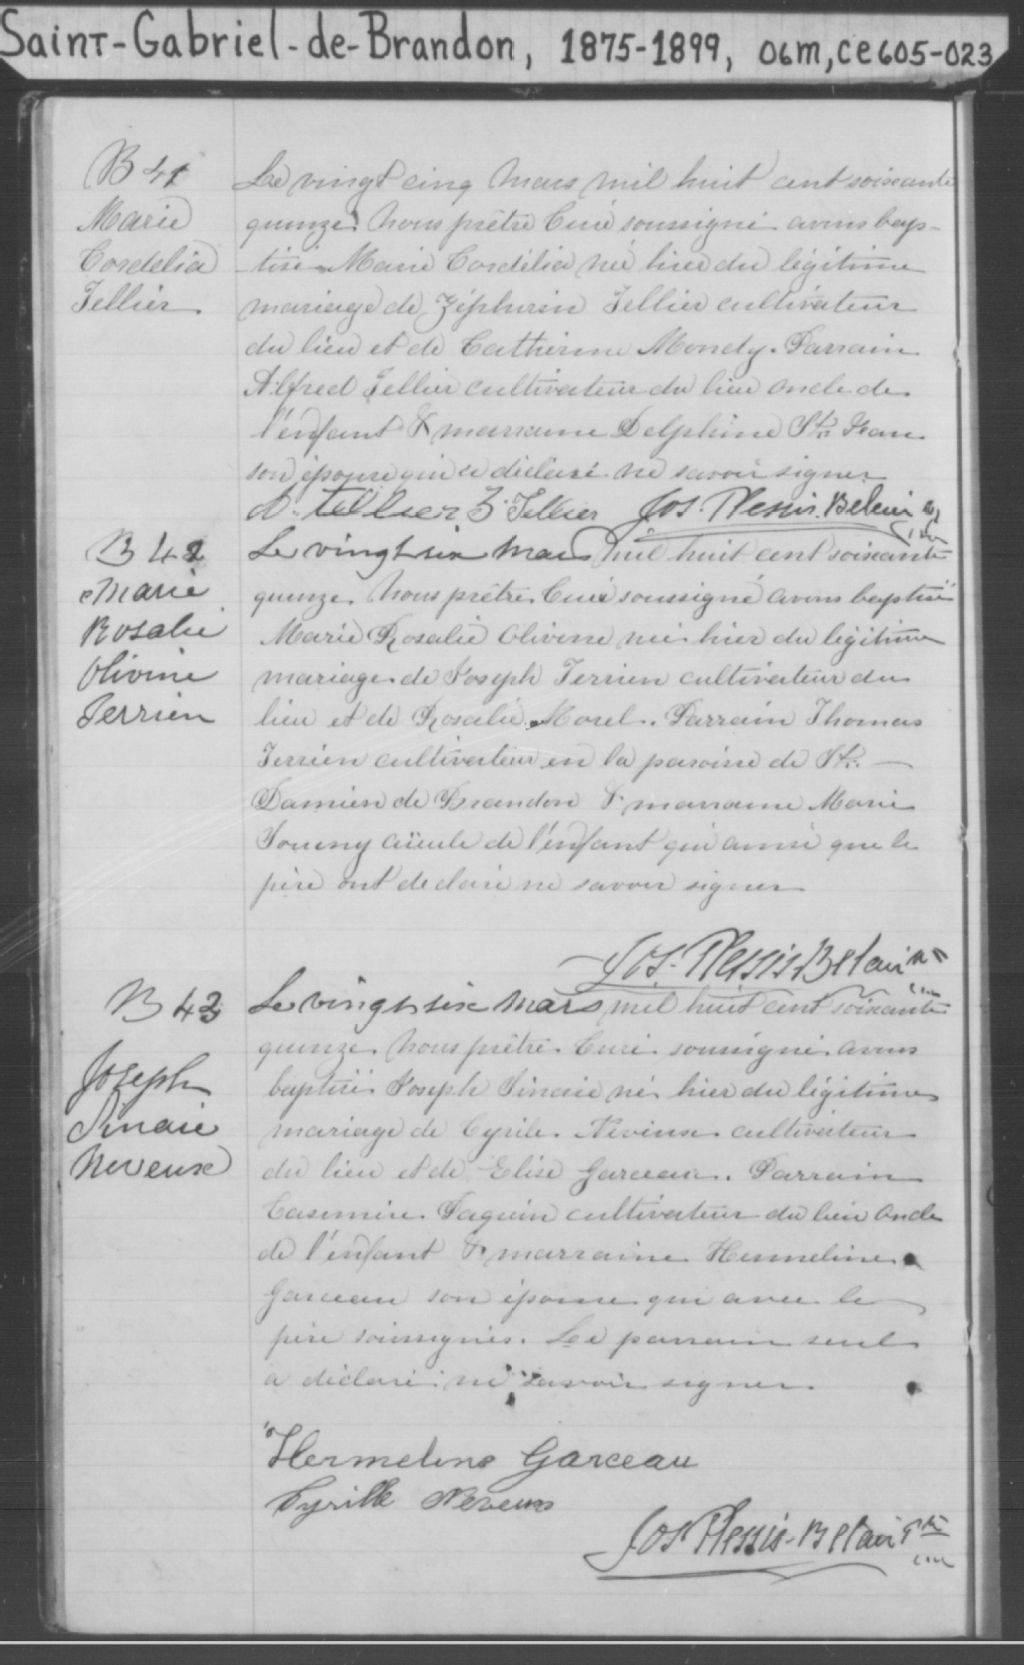 Saint-Gabriel-de-Brandon, 1875-1899, 06m, ce605-023
B 41
Marie
Cordelia
Tellier
Le vingt cinq Mars mil huit cent soixante
quinze Nous prêtre Curé soussigné avons bap-
tisé Marie Cordélia née hier du légitime
mariage de Zéphirin Tellier cultivateur
du lieu et de Catherine Mondy. Parrain
Alfred Tellier cultivateur du lieu oncle de
l'enfant & marraine Delphine St. Jean
son épouse qui a déclaré ne savoir signer
A. tellier Z. Tellier Jos. Plessis-Belair
B 42
Marie
Rosalie
Olivine
Terrien
Le vingt six Mars mil huit cent soixante
quinze Nous prêtre Curé soussigné avons baptisé
Marie Rosalie Olivine née hier du légitime
mariage de Joseph Terrien cultivateur du
lieu et de Rosalie Morel. Parrain Thomas
Terrien cultivateur en la paroisse de St.
Damien de Brandon & marraine Marie
aïeule de l'enfant qui ainsi que le
père ont déclaré ne savoir signer
Jos. Plessis-Belair
B 43
Joseph
Sinaie
Neveux
Le vingt six Mars mil huit cent soixante
quinze Nous prêtre Curé soussigné avons
baptisé Joseph Sinaie né hier du légitime
mariage de Cyrile Neveux cultivateur
du lieu et de Elise Garceau. Parrain
Casemire Paquin cultivateur du lieu oncle
de l'enfant & marraine Hermeline
Garceau son épouse qui avec le
père soussignés. Le parrain seul
a déclaré ne savoir signer
Hermeline Garceau
Cyrille Neveux
Jos Plessis-Belair ptr